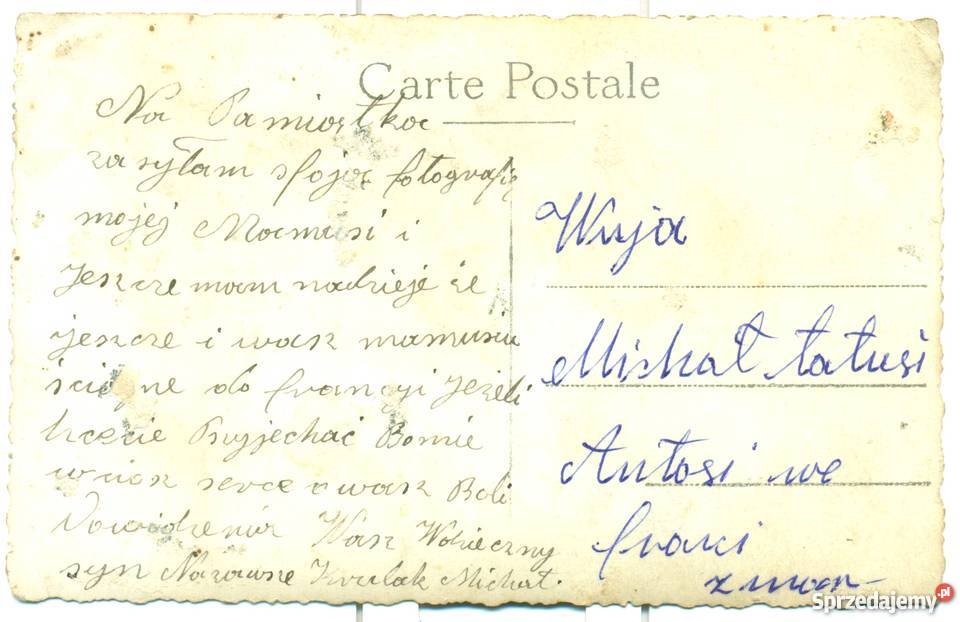 Carte Postale
Na Pamiątkę
zasyłam sfoją fotografię
mojej Mamusi i
Jeszcze mam nadzieje że
jeszcze i wasz mamusiu
ściągne do francyi Jeżeli
hcecie Przyjechać Bomie
wciąsz serce o wasz Boli
Dowidzenia Wasz Wdzieczny
syn Nazawsze Kwulak Michał.
Wuja
Michał tatusi
Antosi we
franci
zmar-
Sprzedajemy.pl